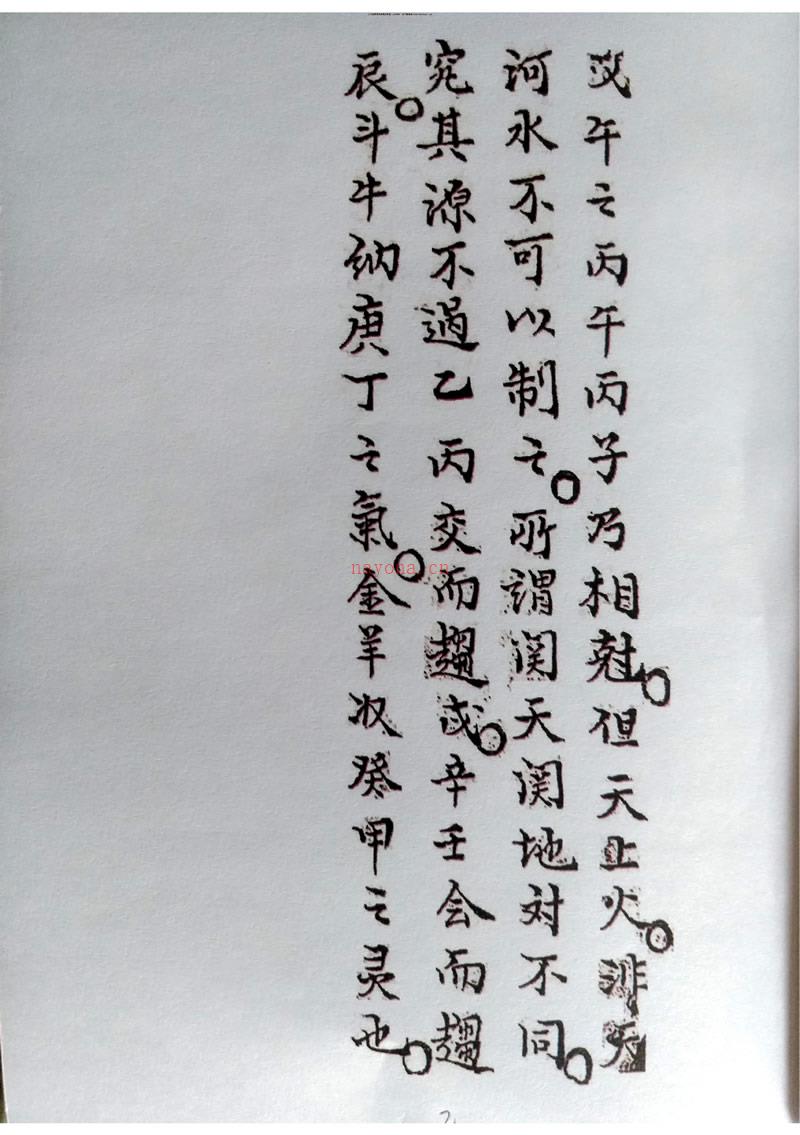 午之丙午丙子乃相尅。但天上火。非天
河水不可以制之。所谓関天関地対不同。
究其源不過乙丙交而趨戍。辛壬会而趨
辰。斗牛纳庚丁之氣。金羊收癸甲之灵也。
nayona.cn
2